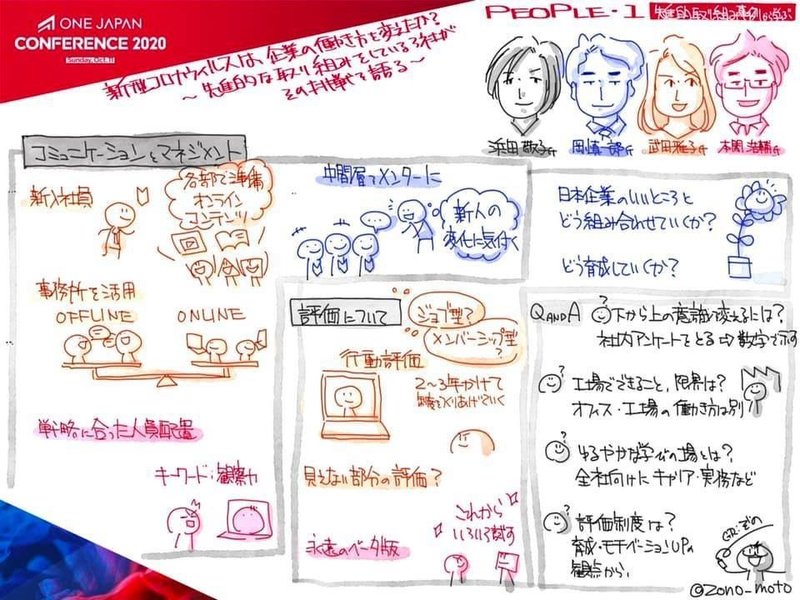 ONE JAPAN
CONFERENCE 2020
Sunday, Oct. 11
PEOPLE・1
新型コロナウィルスは、企業の働き方を変えたか?
〜先進的な取り組みをしている3社が
その挑戦を語る〜
浜田敬子氏
岡慎一郎氏
武田雅子氏
本間浩輔氏
コミュニケーションとマネジメント
新入社員
各部で準備
オンライン
コンテンツ
事務所を活用
OFFLINE
ONLINE
戦略に合った人員配置
キーワード:観察力
中間層でメンターに
新人の
変化に気付く
評価について
ジョブ型?
メンバーシップ型
?
行動評価
2〜3年かけて
つくりあげていく
見えない部分の評価?
永遠のベータ版
これから
いろいろ試す
日本企業のいいところと
どう組み合わせていくか?
どう育成していくか?
Q AND A
下から上の意識を変えるには?
社内アンケートをとる⇨数字で示す
工場でできること、限界は?
オフィス・工場の働き方は別!
ゆるやかな学びの場とは?
全社向けにキャリア・実務など
評価制度は?
育成・モチベーションUPの
観点から、
GR:ぞの
@zono_moto